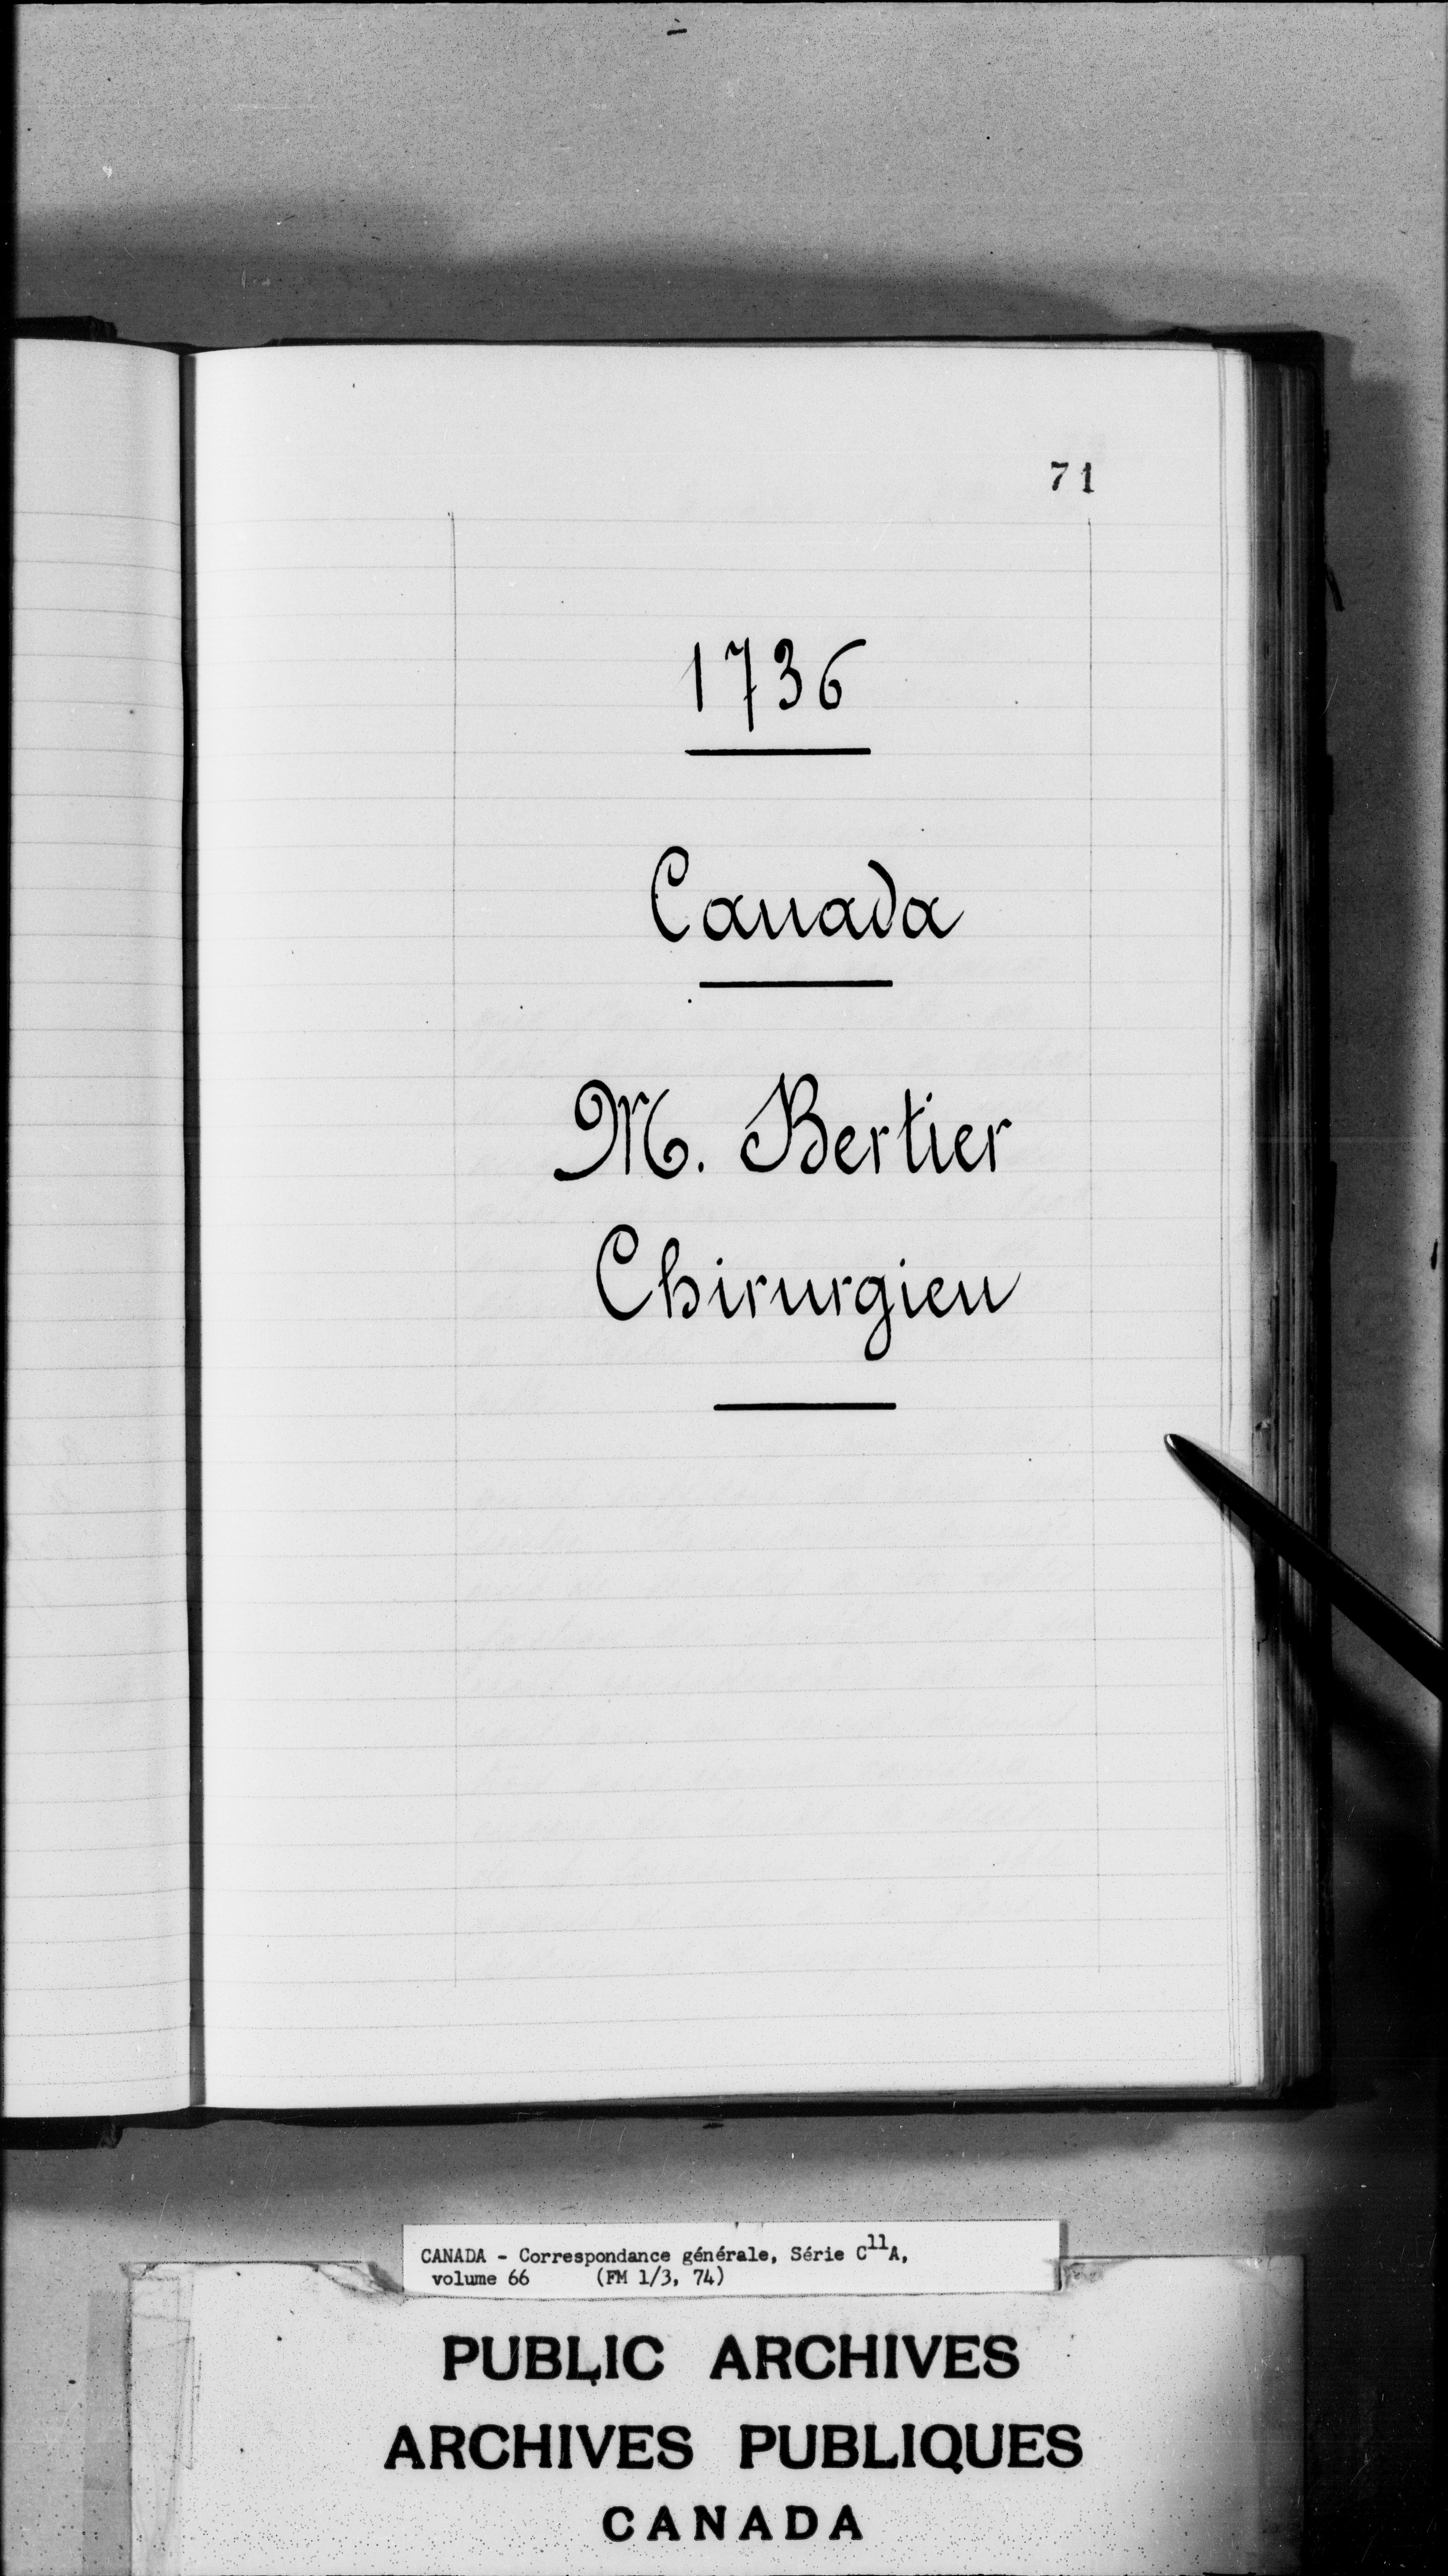 71
1736
Canada
M. Bertier
Chirurgien
CANADA - Correspondance générale, Série C11A,
volume 66 (FM 1/3, 74)
PUBLIC ARCHIVES
ARCHIVES PUBLIQUES
CANADA